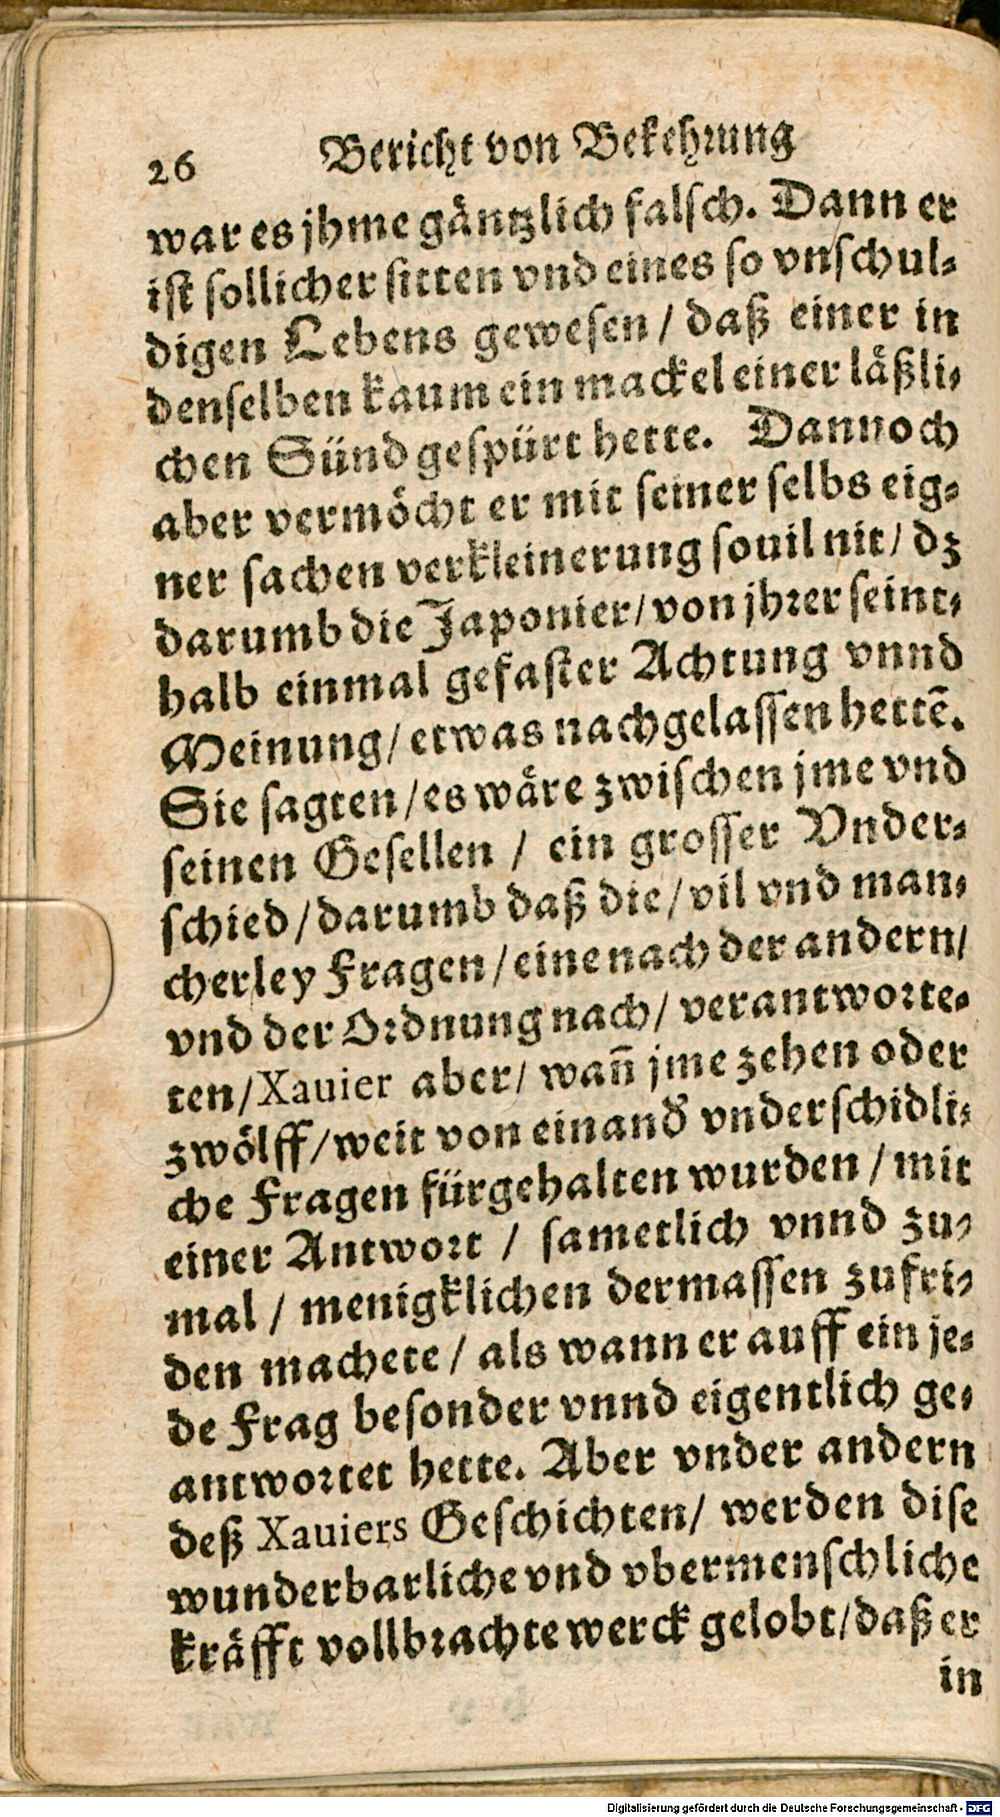 26 Bericht von Bekehrung
war es jhme gäntzlich falsch. Dann er
ist sollicher sitten vnd eines so vnschul-
digen Lebens gewesen / daß einer in
denselben kaum ein mackel einer läßli-
chen Sünd gespürt hette. Dannoch
aber vermöcht er mit seiner selbs eig-
ner sachen verkleinerung souil nit / dz
darumb die Japonier / von jhrer seint-
halb einmal gefaster Achtung vnnd
Meinung / etwas nachgelassen hettē.
Sie sagten / es wäre zwischen jme vnd
seinen Gesellen / ein grosser Vnder-
schied / darumb daß die / vil vnd man-
cherley Fragen / eine nach der andern /
vnd der Ordnung nach / verantworte-
ten / Xauier aber / wañ jme zehen oder
zwölff / weit von einand' vnderschidli-
che Fragen fürgehalten wurden / mit
einer Antwort / sametlich vnnd zu-
mal / menigklichen dermassen zufri-
den machete / als wann er auff ein je-
de Frag besonder vnnd eigentlich ge-
antwortet hette. Aber vnder andern
deß Xauiers Geschichten / werden dise
wunderbarliche vnd vbermenschliche
kräfft vollbrachte werck gelobt / daß er
in
Digitalisierung gefördert durch die Deutsche Forschungsgemeinschaft - DFG